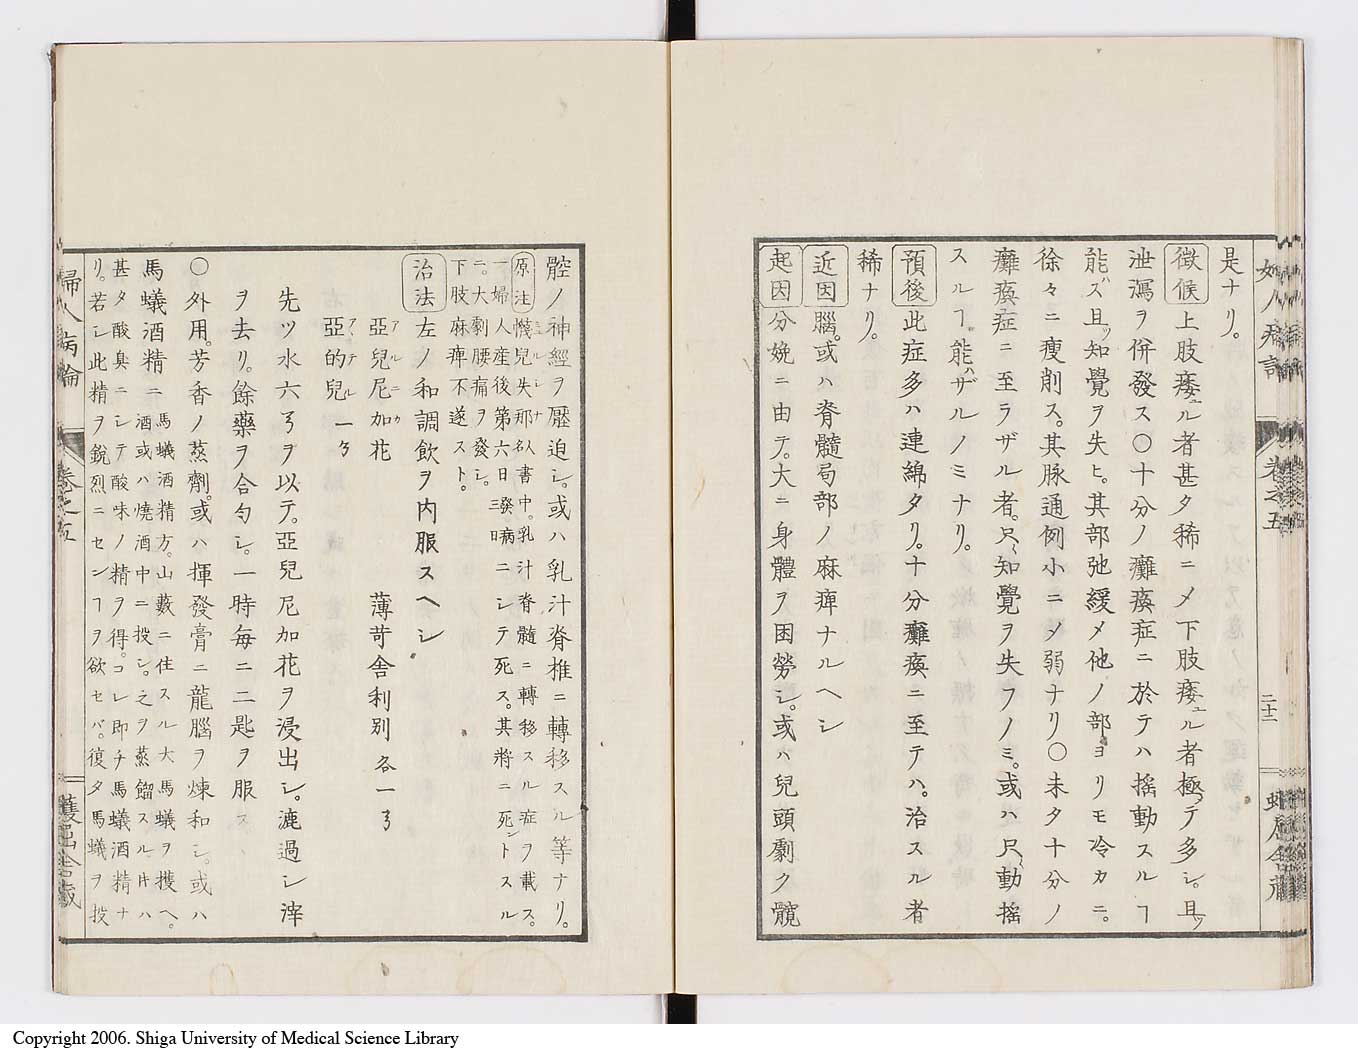 是ナリ。
徴候 上肢痿ユル者甚タ稀ニ〆下肢痿ユル者極テ多シ。且ツ
泄瀉ヲ併發ス〇十分ノ癱瘓症ニ於テハ搖動スルヿ
能ハズ且ツ知覺ヲ失ヒ。其部弛緩〆他ノ部ヨリモ冷カニ。
徐々ニ瘦削ス。其脉通例小ニ〆弱ナリ〇未タ十分ノ
癱瘓症ニ至ラザル者。只知覺ヲ失フノミ。或ハ只動搖
スルヿ能ハザルノミナリ。
預後 此症多ハ連綿タリ。十分癱瘓ニ至テハ。治スル者
稀ナリ。
近因 腦。或ハ脊髓局部ノ麻痺ナルヘシ
起因 分娩ニ由テ。大ニ身體ヲ困勞シ。或ハ兒頭劇ク髖
卷之五
二十二
腔ノ神經ヲ壓迫シ。或ハ乳汁脊椎ニ轉移スル等ナリ。
原注 幾兒失那以書中。乳汁脊髓ニ轉移スル症ヲ載ス。
一婦人產後第六日發病ニシテ死ス。其將ニ死ントスル
ニ。大劇腰痛ヲ發シ。
下肢麻痺不遂スト。
治法 左ノ和調飲ヲ内服スヘシ
亞兒尼加花 薄荷舍利別各一ヲ
アルニカ
亞的兒 一匁
アーテル
先ツ水六ヲヲ以テ。亞兒尼加花ヲ浸出シ。漉過シ滓
ヲ去リ。餘藥ヲ合匀シ。一時每ニ二匙ヲ服ス
〇外用。芳香ノ蒸劑。或ハ揮發膏ニ龍腦ヲ煉和シ。或ハ
馬蟻酒精ニ 馬蟻酒精方。山藪ニ住スル大馬蟻ヲ擭ヘ。
酒或ハ燒酒中ニ投シ。之ヲ蒸餾スル𪜈ハ
甚タ酸臭ニシテ酸味ノ精ヲ得。コレ即チ馬蟻酒精ナ
リ。若シ此精ヲ銳烈ニセンヿヲ欲セバ。復タ馬蟻ヲ投
婦人病論
卷之五
Copyright 2006. Shiga University of Medical Science Library